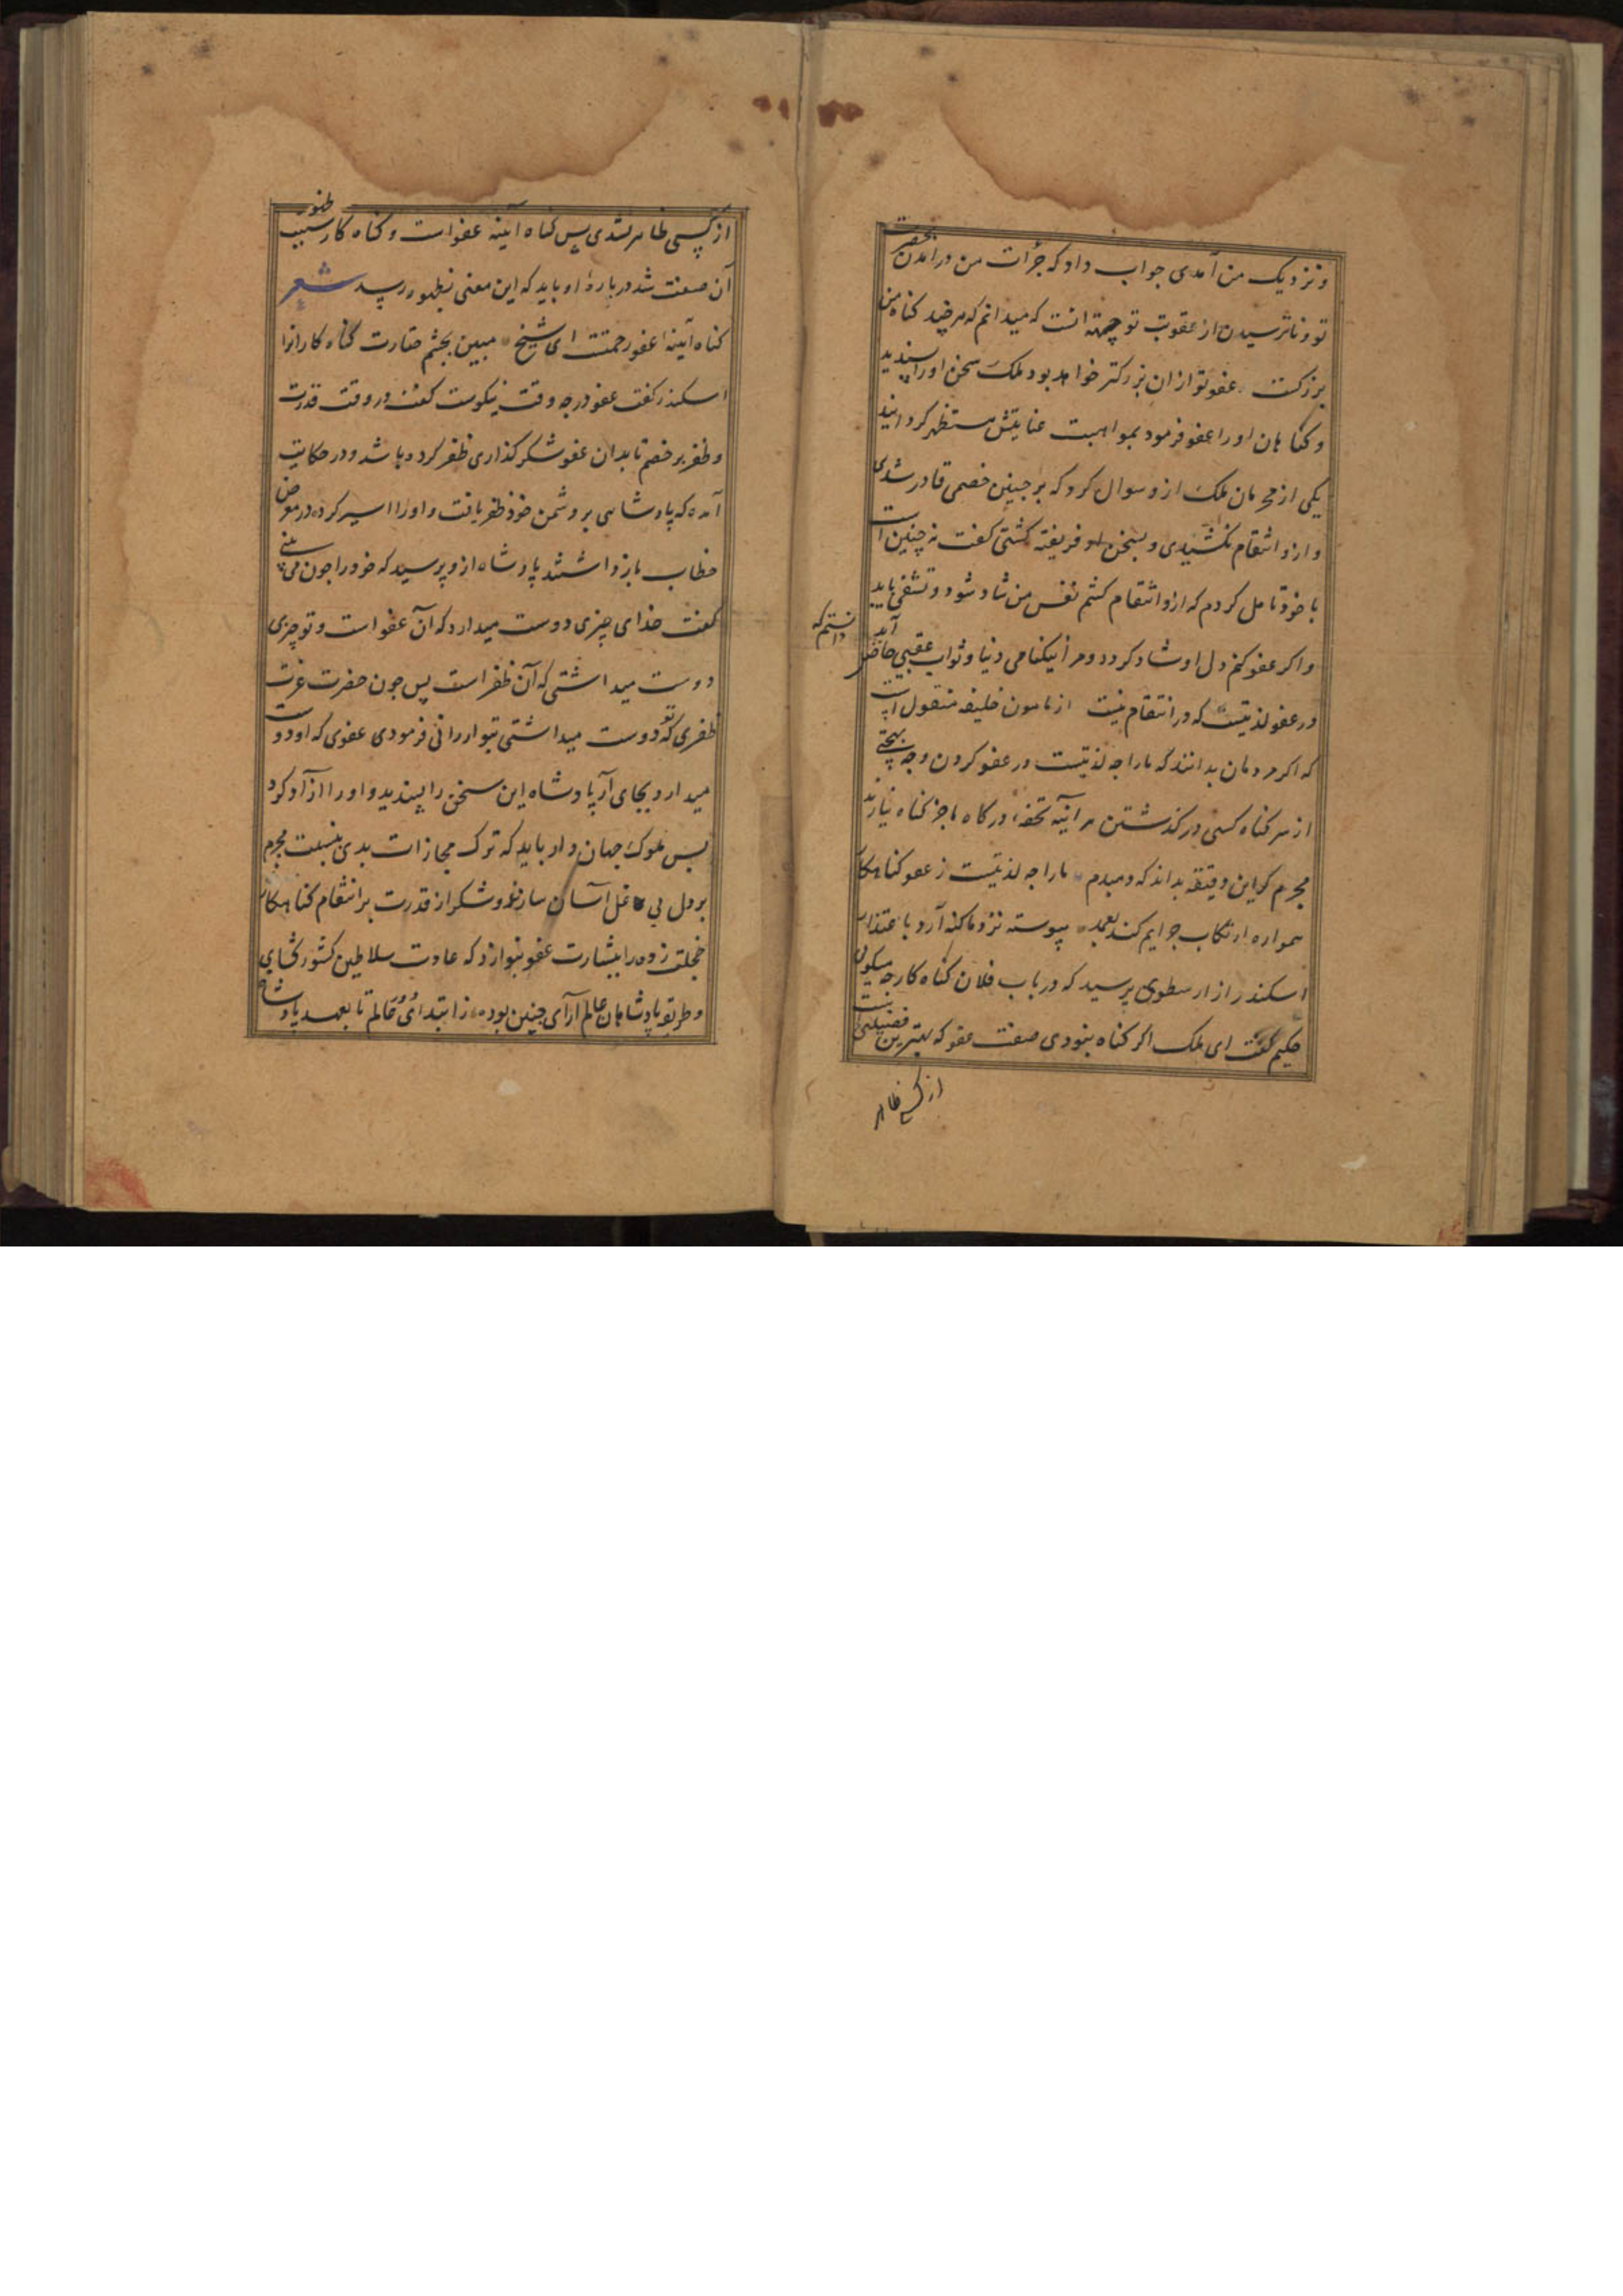 و نزدیک من آمدی جواب داد که جرأت من در آمدن بحضرت
تو و ناترسیدن از عقوبت تو جهة آنست که میدانم که هرچند کناه من
بزرکست عفو تو ازان بزرکتر خواهد بود ملک سخن او را پسندید
و کناهان او را عفو فرمود بمواهبت عنایتش مستظهر کردانید
یکی از محرمان ملک ازو سوال کرد که بر جنین خصمی قادر شدی
و ازو انتقام نکشیدی و بسخن او فریفته کشتی کفت نه چنین است
با خود تامل کردم که ازو انتقام کشم نفس من شاد شود و تشفی یابد
و اکر عفو کنم دل او شاد کردد و مرا نیکنامی دنیا و ثواب عقبی حاضر آید
دانستم که
در عفو لذتیست که در انتقام نیست از مامون خلیفه منقول است
که اکر مردمان بدانند که مارا جه لذتیست در عفو کردن و جه بهجتی
از سر کناه کسی درکذشتن هر آینه تحفهٔ درکاه ما جز کناه نیارند
مجرم کر این دقیقه بداند که دمبدم مارا جه لذتیست ز عفو کناهکار
همواره ارتکاب جرایم کند بعمد پیوسته نزد ما کنه آرد باعتذار
اسکندر از ارسطوی پرسید که در باب فلان کناه کار جه میکوی
حکیم کفت ای ملک اکر کناه نبودی صفت عفو که بهترین فضیلتی است
از کسی ظاهر
از کسی ظاهر نشدی پس کناه آینه عفو است و کناه کار سبب ظهور
آن صفت شد در بارهٔ او باید که این معنی بظهور رسد شعر
کناه آینهٔ عفو رحمتست ای شیخ مبین بجشم حقارت کناه کارانرا
اسکندر کفت عفو در جه وقت نیکوست کفت در وقت قدرت
و ظفر بر خصم تا بدان عفو شکر کذاری ظفر کرده باشد و در حکایت
آمده که پادشاهی بر دشمن خود ظفر یافت و او را اسیر کرده در معرض
خطاب بازداشتند پادشاه ازو پرسید که خود را جون می بینی
کفت خدای چیزی دوست میدارد که آن عفو است و تو چیزی
دوست میداشتی که آن ظفر است پس جون حضرت عزت
ظفری که تو دوست میداشتی بتو ارزانی فرمودی عفوی که او دوست
میدارد بجای آر پادشاه این سخن را پسندید و او را ازآد کرد
بس ملوک جهان دار باید که ترک مجازات بدی بنسبت مجرم
بر دل بی غل آسان سازند و شکر از قدرت بر انتقام کناهکار
خجلت زده را ببشارت عفو بنوازد که عادت سلاطین کشور کشای
و طریق پادشاهان عالم آرای جنین بوده ز ابتدای عالم تا بعهد پادشاه